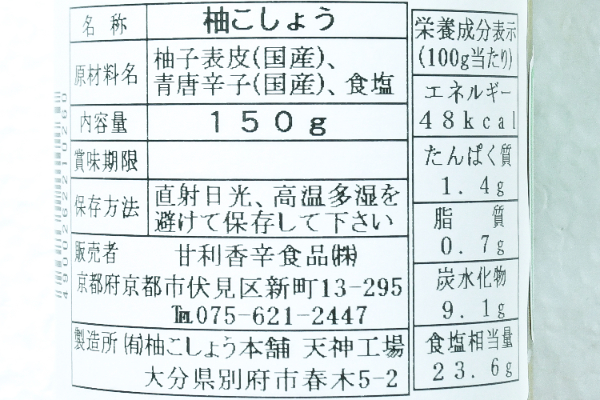 名称 柚こしょう
原材料名 柚子表皮(国産)、
青唐辛子(国産)、食塩
内容量 150g
賞味期限
保存方法 直射日光、高温多湿を
避けて保存して下さい
販売者 甘利香辛食品㈱
京都府京都市伏見区新町13-295
℡075-621-2447
製造所 ㈲柚こしょう本舗 天神工場
大分県別府市春木5-2
栄養成分表示
(100g当たり)
エネルギー
48kcal
たんぱく質
1.4g
脂質
0.7g
炭水化物
9.1g
食塩相当量
23.6g